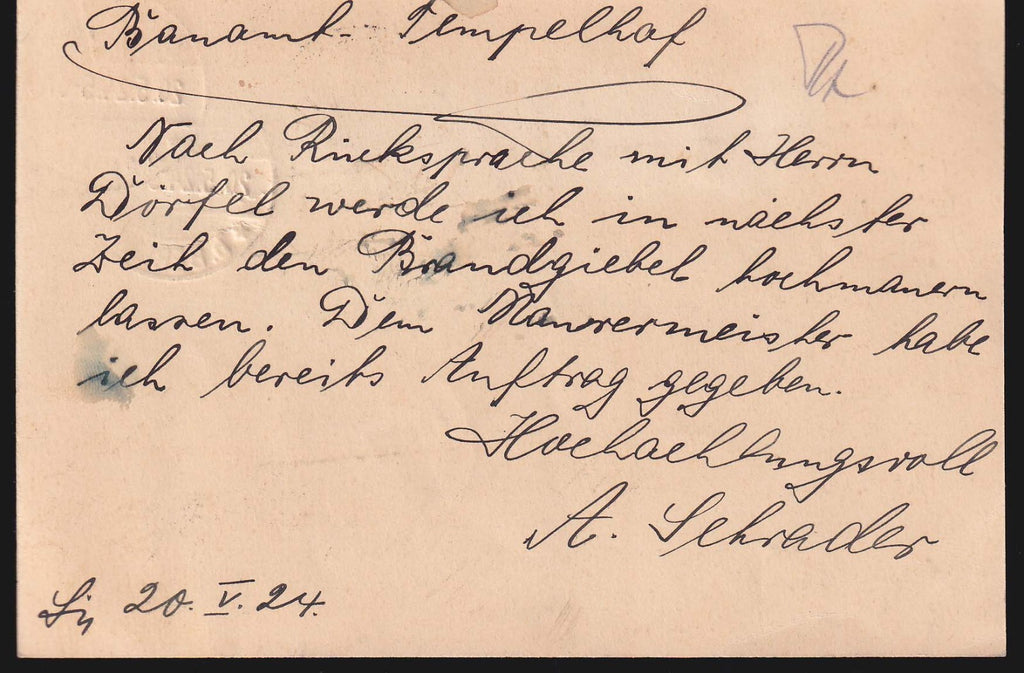 Bauamt - Tempelhof
Nach Rücksprache mit Herrn
Dörfel werde ich in nächster
Zeit den Brandgiebel hochmauern
lassen. Dem Maurermeister habe
ich bereits Auftrag gegeben.
Hochachtungsvoll
A. Schrader
20. V. 24.